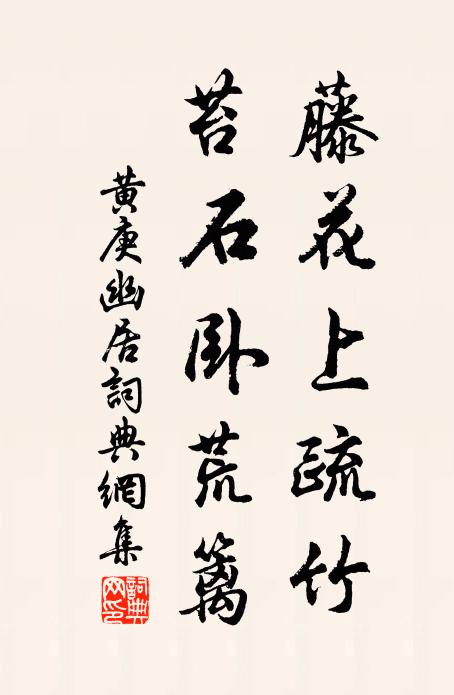 藤花上疏竹
苔石卧荒篱
黄庚幽居詞典網集
詞典网印